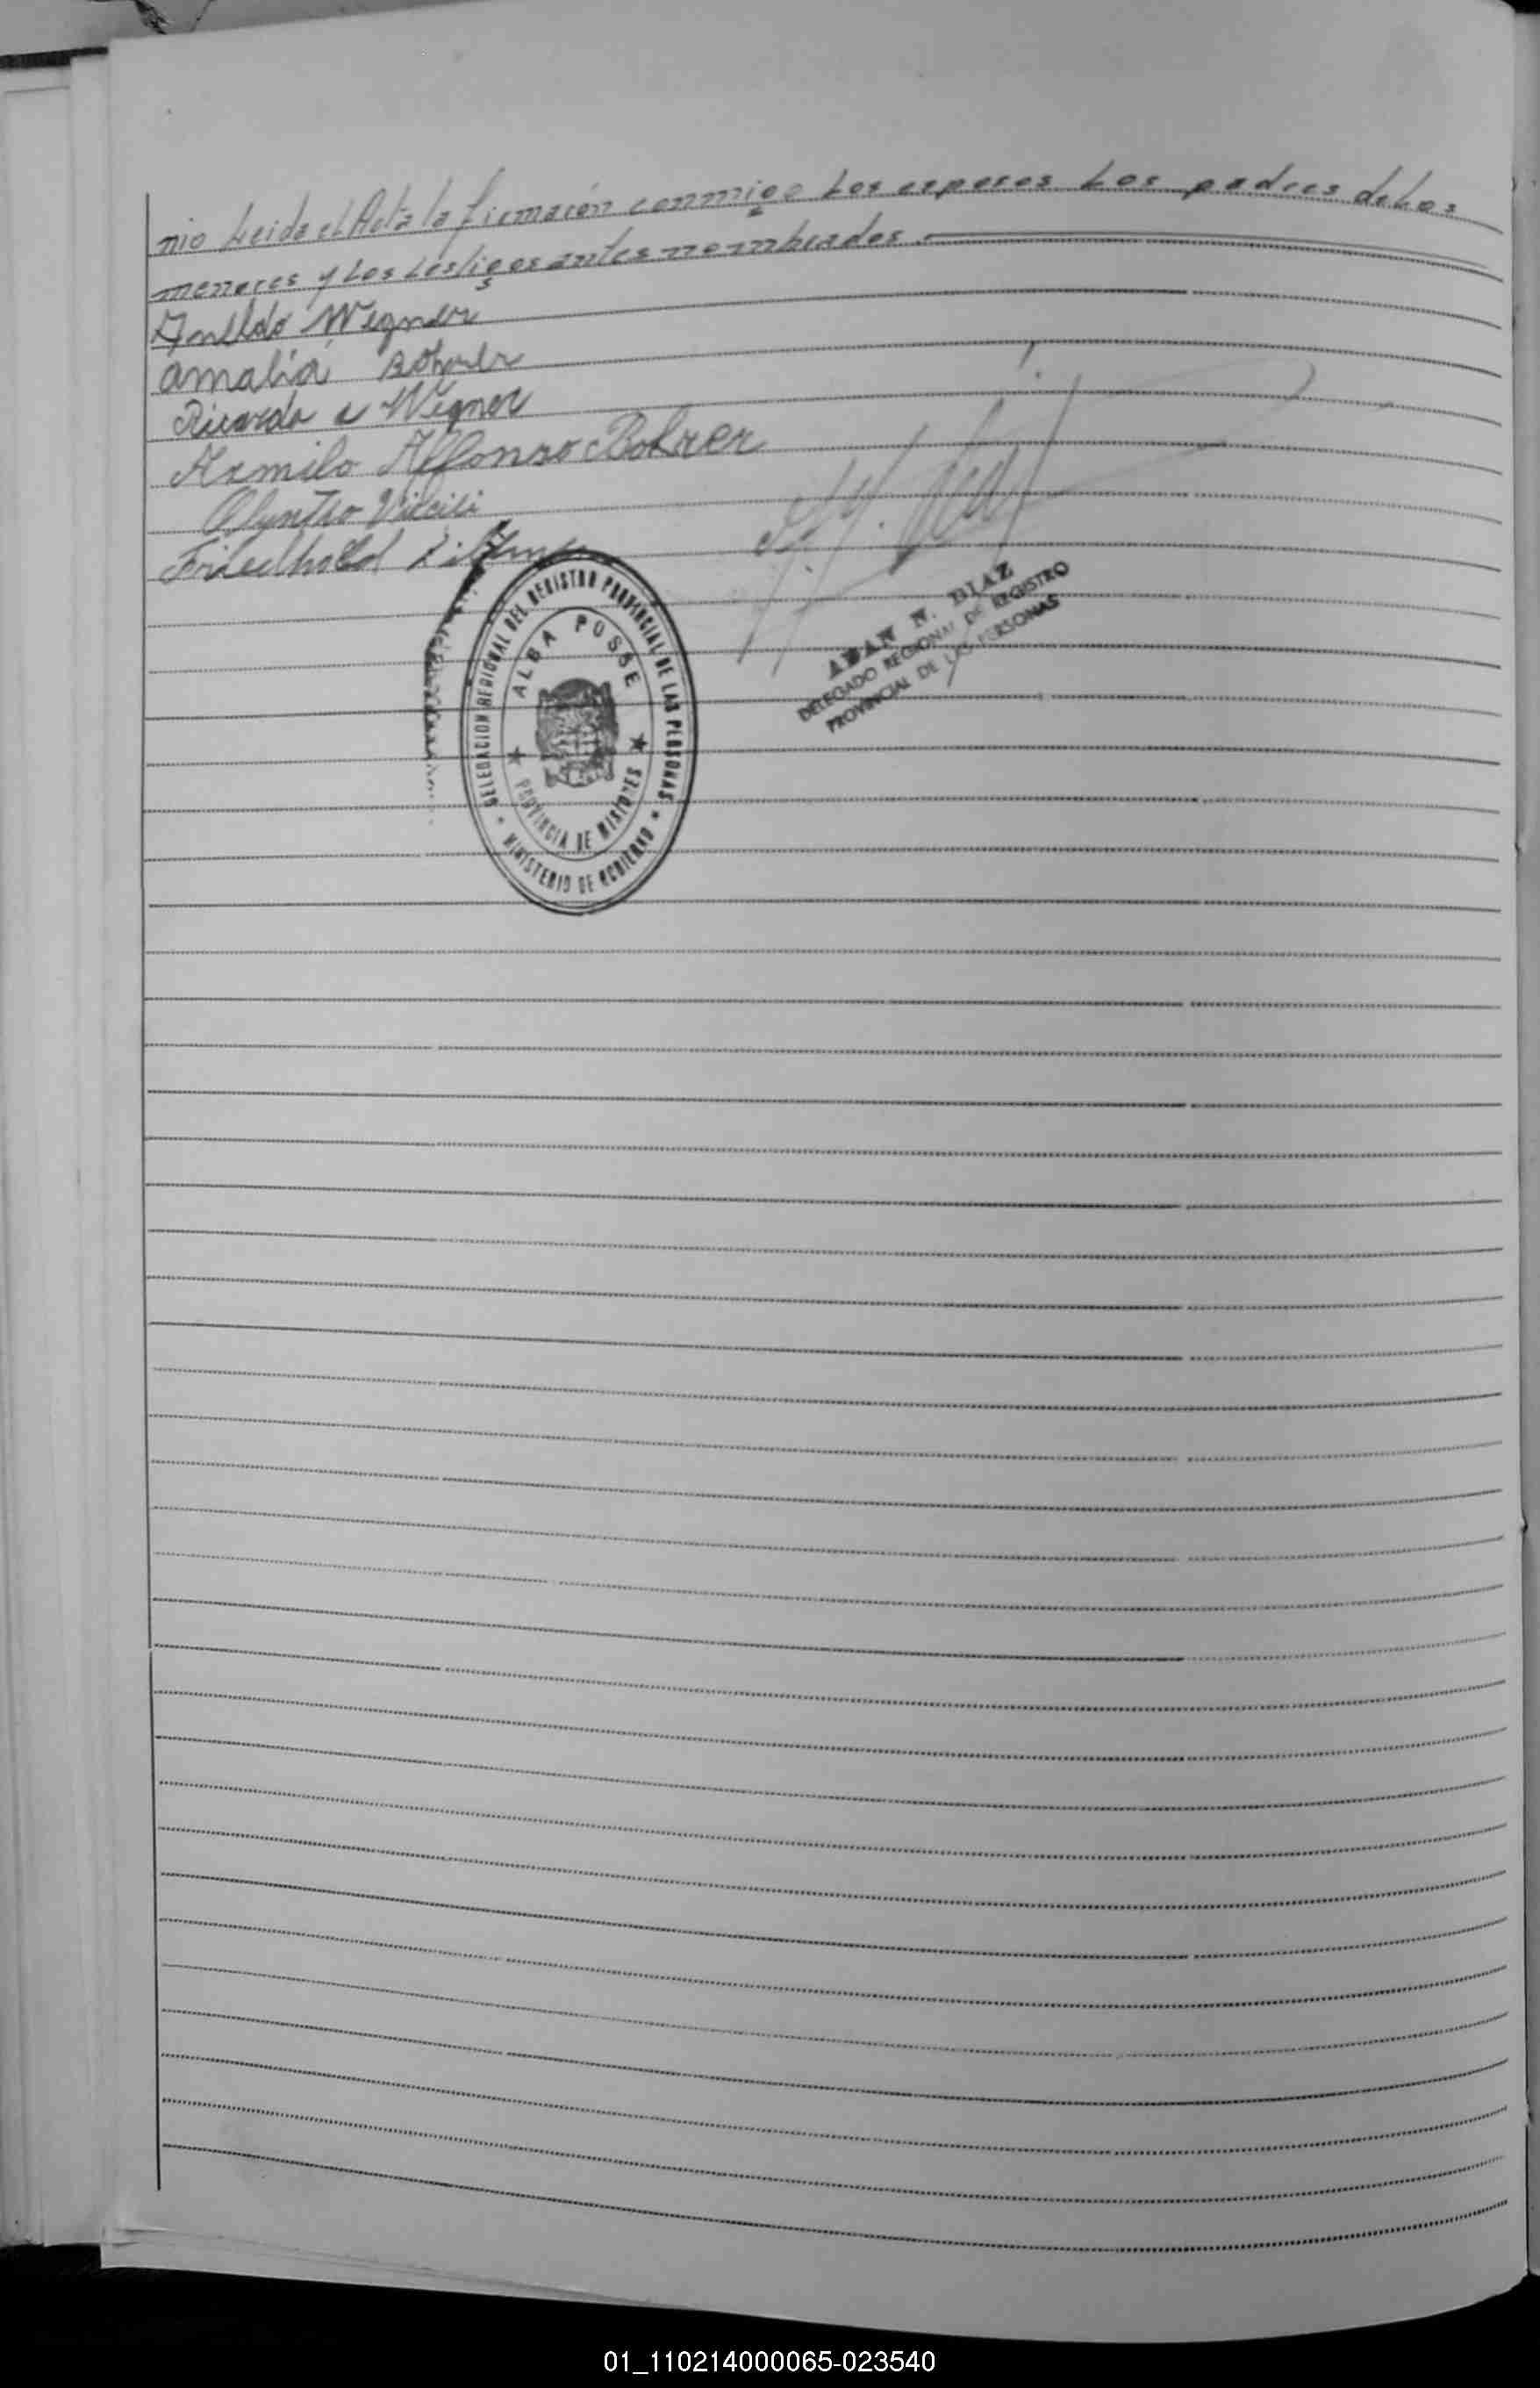 nio Leida el Acta la firmaron conmigo Los esposos Los padres de Los
menores y Los testigos antes nombrados.
Wegner
Amalia Bohrer
Ricardo a Wegner
Armilo Alfonso Bohrer
Olyntho
Friedhold
DELEGACION REGIONAL DEL REGISTRO PROVINCIAL DE LAS PERSONAS
ALBA POSSE
PROVINCIA DE MISIONES
MINISTERIO DE GOBIERNO
ADAN N. DIAZ
DELEGADO REGIONAL DE REGISTRO
PROVINCIAL DE LAS PERSONAS
01_110214000065-023540